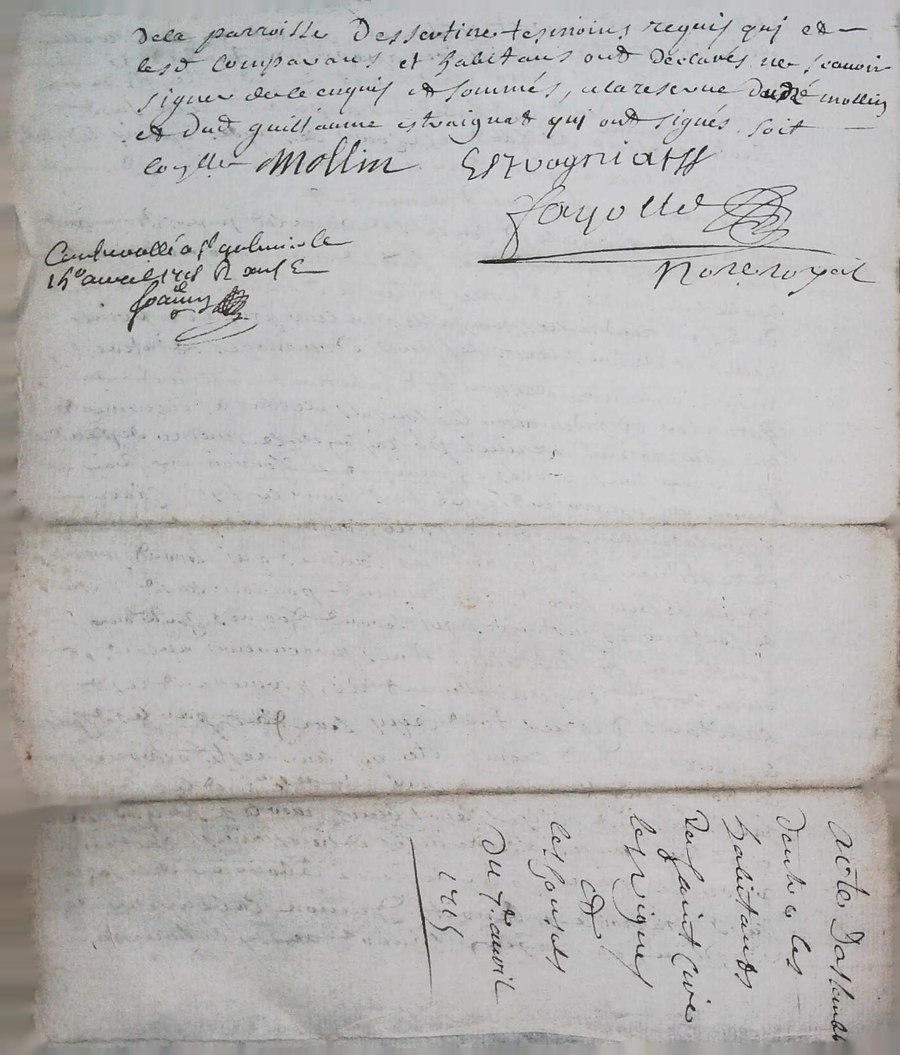 de la parroisse Dessertine tesmoins requis qui et
lesd comparans et habitans ont déclarés ne scavoir
signer de ce enquis et sommés, a la reserve dudé mollin
et dud guillaume estraignat qui ont signés soit
Mollin Estvogniatff
fayolle
Notre royal
Controollé a st galmier le
15e avril 1715 R
acte Dassemblé
dentre les
habitants
de saint Cire
les vignes
et
les fauses
Du 7e avril
1715